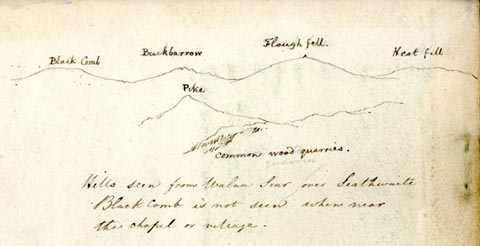 Black Comb Buckbarrow Plough fell. Hest fell
Pike
common wood quarries.
Hills seen from Walna Scar over Seathwaite
Black Comb is not seen when near
the chapel or village.